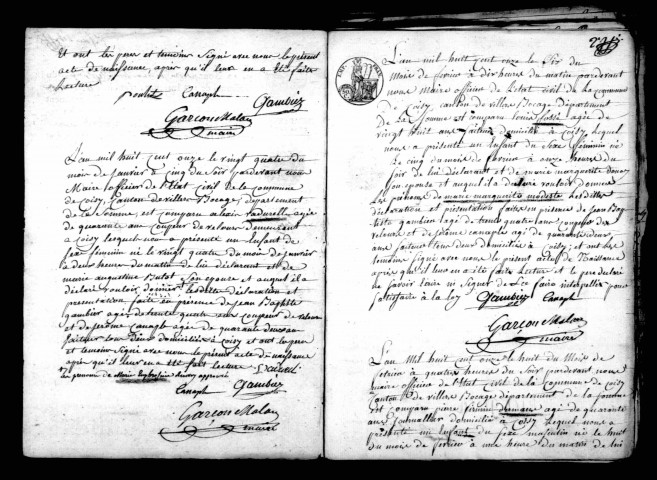 Et ont les pere et temoins signé avec nous le présent
acte de naissance, après qu'il leur en a été faite
lecture
Canaple Gambiez
Garçon Malon
maire
L'an mil huit cent onze le vingt quatre du
mois de janvier à cinq du soir pardevant nous
Maire officier de l'Etat Civil de la commune
de Coisy, Canton de villers Bocage, departement
de la Somme, est comparu alexis agé
de quarante ans coupeur de velours demeurant
à Coisy lesquel nous a présenté un Enfant de
sexe feminin né le vingt quatre du mois de janvier
à deux heures du matin de lui déclarant et de
marie augustine Butot son epouse et auquel il a
déclaré vouloir donner lesdites déclaration et
présentation faite en présence de jean Baptiste
gambier agé de trente quatre ans coupeur de velours
et de jerome canaple agé de quarante deux ans
faiteur tous deux domiciliés à Coisy et ont les pere
et temoins signé avec nous le présent acte de naissance
après qu'il leur en a été fait lecture
les prenoms de Marie
Canaple Gambiez
Garçon Malon
maire
L'an mil huit cent onze le six du
mois de fevrier à dix heures du matin pardevant
nous maire officier de l'Etat Civil de la commune
de Coisy canton de villers Bocage département
de la Somme est comparu louis agé de
vingt huit ans faiteur domicilié à Coisy lequel
nous a présenté un Enfant du sexe féminin né
le cinq du mois de fevrier à onze heures du
soir de lui déclarant et de marie marguerite
son epouse et auquel il a déclaré vouloir donner
les prenoms de marie marguerite modeste lesdittes
déclaration et présentation faite en présence de jean Bap
tiste gambier agé de trente quatre ans coupeur de
velours et de jerome canaple agé de quarante deux
ans faiteur tous deux domiciliés à Coisy; et ont les
temoins signé avec nous le présent acte de Naissance
après que il leur en a été faite Lecture et le pere déclaré
ne savoir écrire ni signer de ce faire interpellé pour
satisfaire à la loy Gambiez Canaple
Garçon Malon
maire
L'an mil huit cent onze le huit du Mois de
fevrier à quatre heures du soir pardevant nous
maire officier de l'Etat civil de la Commune de Coisy
Canton de villers Bocage département de la somme
est comparu pierre firmin agé de quarante
ans journallier domicilié à Coisy lequel nous a
présenté un Enfant du sexe masculin né le huit
du mois de fevrier à une heure du matin de lui